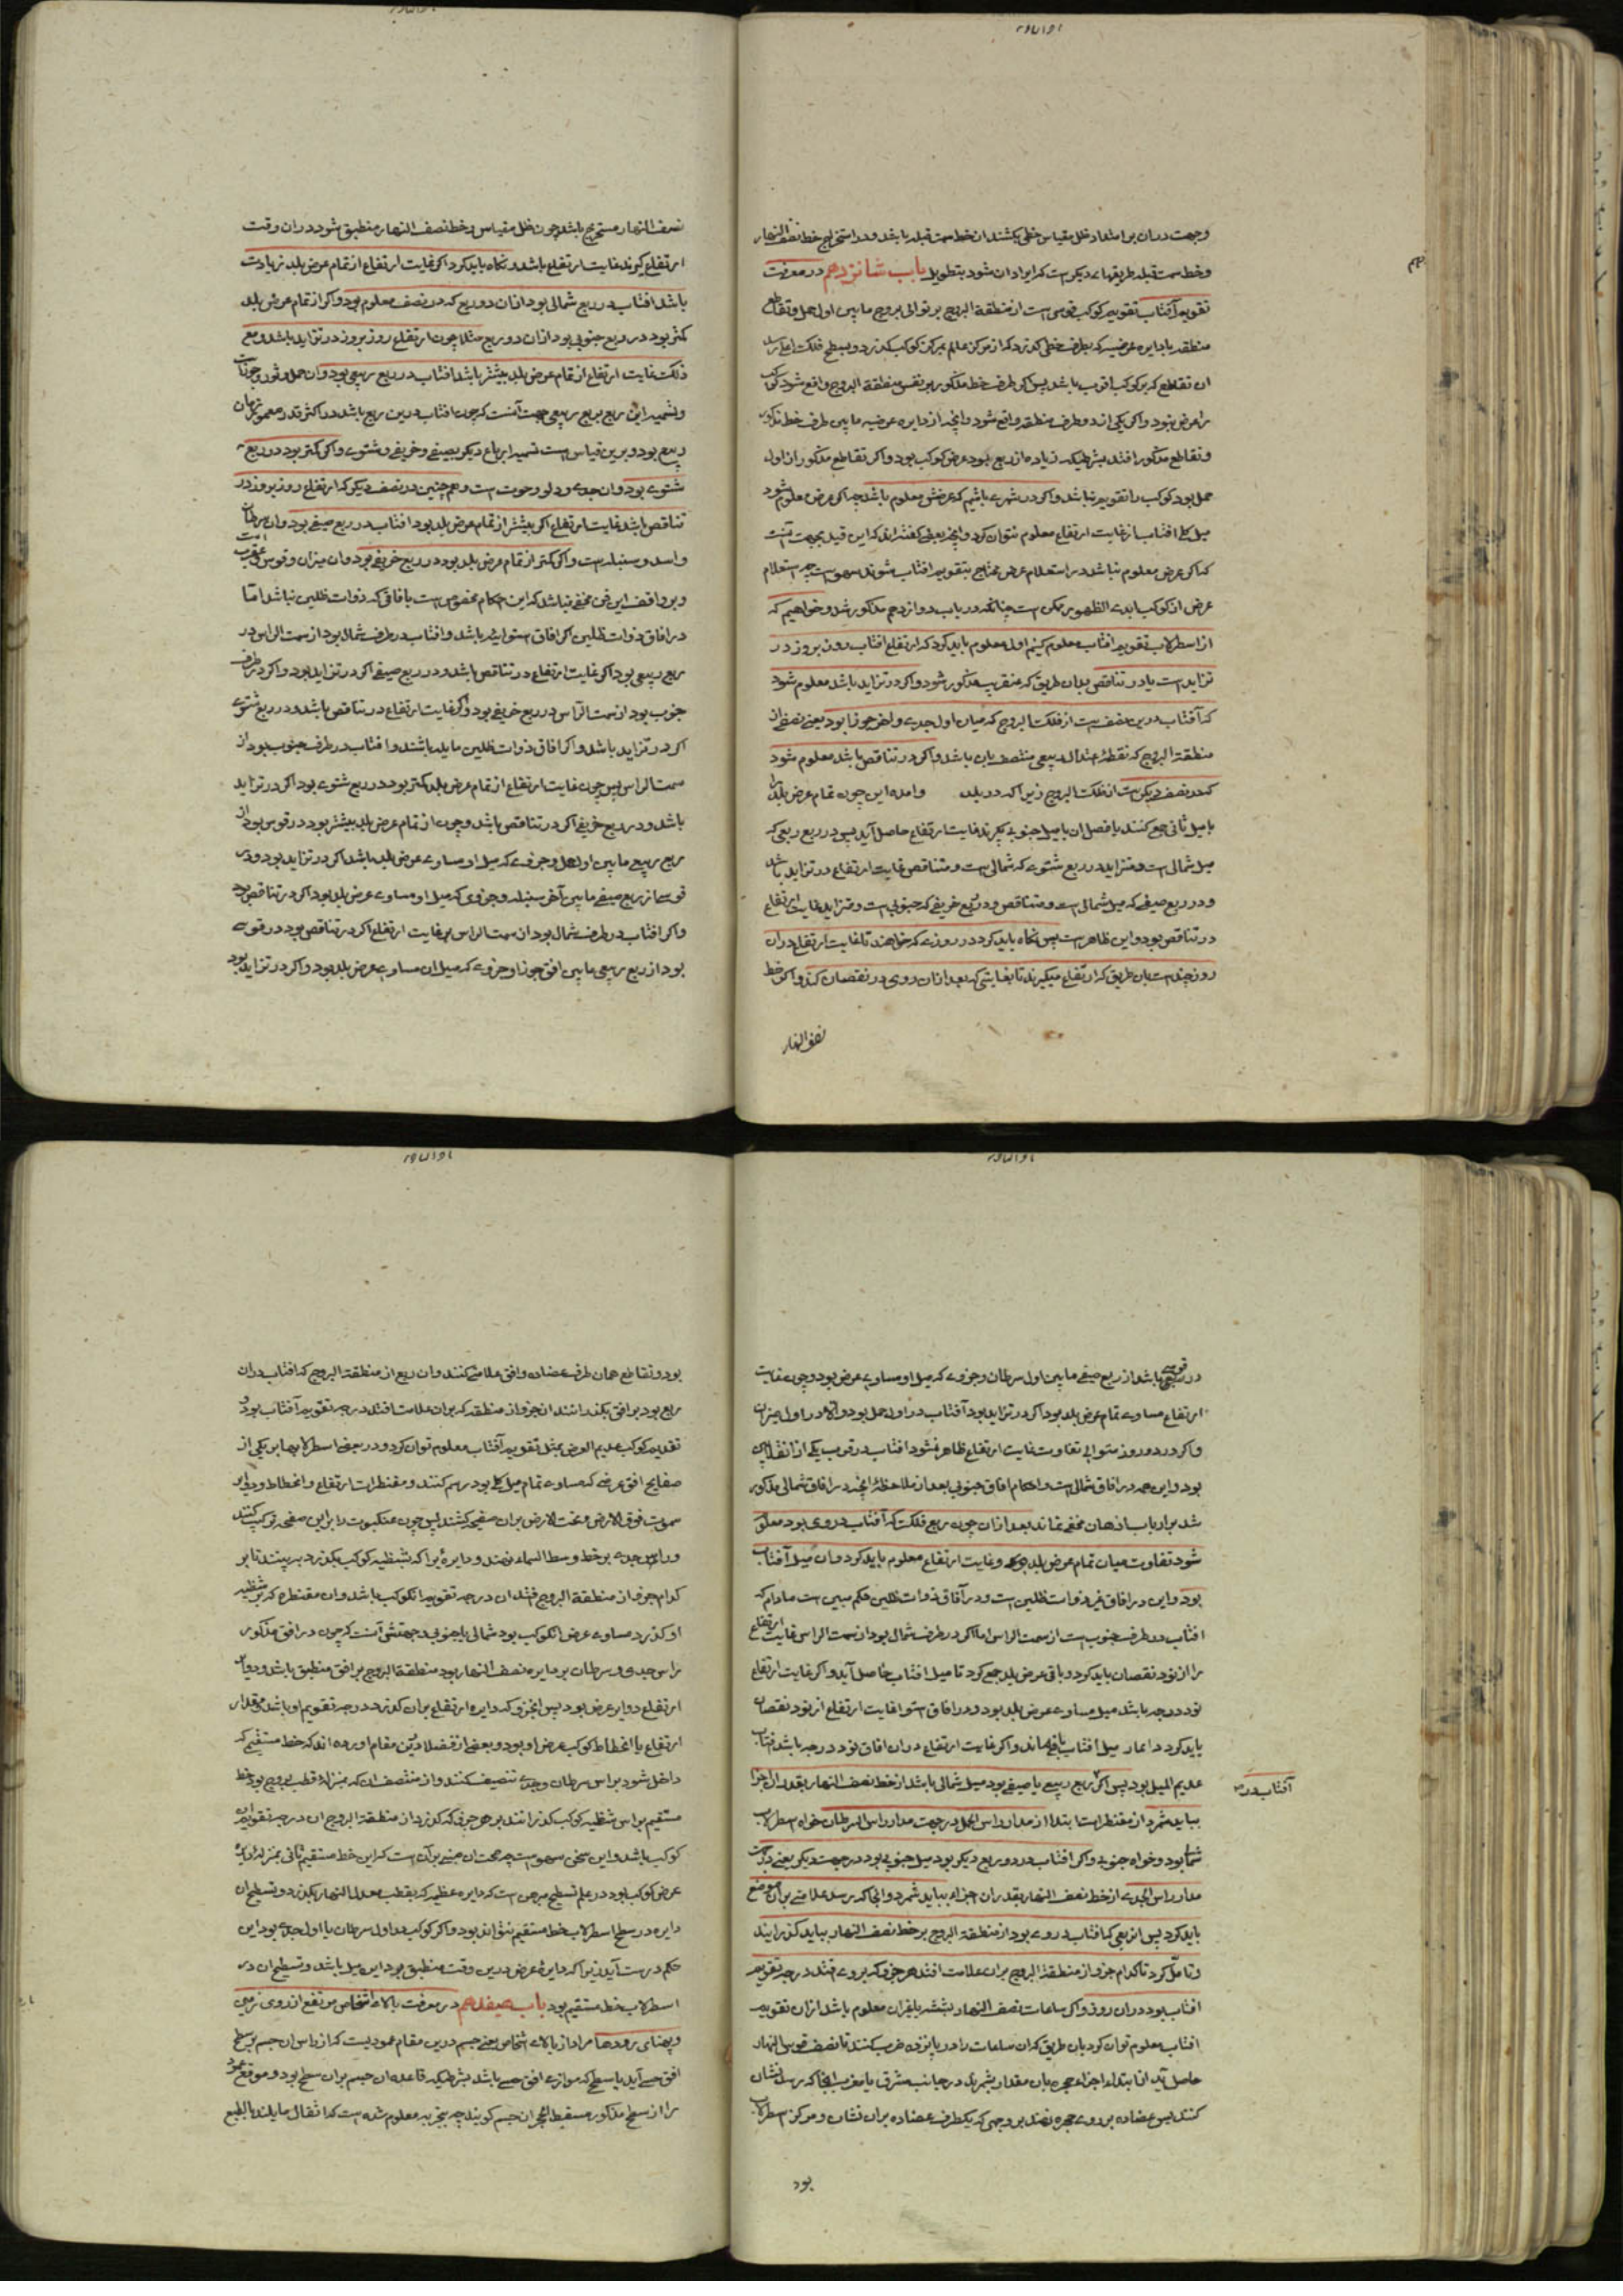 وجهت دران بر امتداد ظل مقیاس خطی بکشند ان خط سمت قبله باشد و در استخراج خط نصف النهار
و خط سمت قبله طریقهاء دیگر است که ایراد ان شود بتطویل باب شانزدهم در معرفت
تقویم آفتاب تقویم کوکب قوسی است از منطقة البروج بر توالی بروج مابین اول حمل و تقاطع
منطقه با دایره عرضیه که بطرف خطی گذرد که از مرکز عالم بمرکز کوکب گذرد و بسطح فلک اعلی رسد
ان تقاطع که بر کوکب اقرب باشد پس اگر طرف خط مذکور بر نفس منطقة البروج واقع شود کوکب
را عرض نبود و اگر یکی از دو طرف منطقه واقع شود و انچه از دایره عرضیه مابین طرف خط مذکور
و تقاطع مذکور افتد بشرطیکه زیاده از ربع نبود عرض کوکب بود و اگر تقاطع مذکور از اول
حمل بود کوکب را تقویم نباشد و اگر در شهری باشیم که عرضش معلوم باشد چه اگر عرض معلوم نشود
میل کلی افتاب از غایت ارتفاع معلوم نتوان کرد و انچه بعضی گفته‌اند که این قید بجهت آنست
که اگر عرض معلوم نباشد در استعلام عرض محتاج بتقویم افتاب شوند سهو است چه استعلام
عرض از کوکب ابدی الظهور ممکن است چنانکه در باب دوازدهم مذکور شد و خواهیم که
از اسطرلاب تقویم افتاب معلوم کنیم اول معلوم باید کرد که ارتفاع افتاب روز بروز در
تزاید است یا در تناقص بدان طریق که عنقریب مذکور شود و اگر در تزاید باشد معلوم شود
که آفتاب درین نصف است از فلک البروج که میان اول جدی و اخر جوزا بود یعنی نصفی از
منطقة البروج که نقطهٔ اعتدال ربیعی منتصف بان باشد و اگر در تناقص باشد معلوم شود
که در نصف دیگر است از فلک البروج زیرا که در بلد وامده این چون تمام عرض بلد را
با میل ثانی جمع کنند یا فضل ان با میل جنوبی بگیرند غایت ارتفاع حاصل آید پس در ربع ربیعی که
میل شمالی است و متزاید و در ربع شتوی که شمالی است و متناقص غایت ارتفاع در تزاید باشد
و در ربع صیفی که میل شمالی است و متناقص و در ربع خریفی که جنوبی است و متزاید غایت ارتفاع
در تناقص بود و این ظاهر است پس نگاه باید کرد در روزی که خواهند تا غایت ارتفاع دران
روز چند است بان طریق که ارتفاع میگیرند تا بغایتی که بعد از ان روی در نقصان کند و اگر خط
نصف النهار
نصف النهار مستخرج باشد چون ظل مقیاس بر خط نصف النهار منطبق شود دران وقت
ارتفاع گیرند غایت ارتفاع باشد و نگاه باید کرد اگر غایت ارتفاع از تمام عرض بلد زیادت
باشد افتاب در ربع شمالی بود ازان دو ربع که در نصف معلوم بود و اگر از تمام عرض بلد
کمتر بود در ربع جنوبی بود ازان دو ربع مثلا چون ارتفاع روز بروز در تزاید باشد و مع
ذلک غایت ارتفاع از تمام عرض بلد بیشتر باشد افتاب در ربع ربیعی بود و ان حمل و ثور و جوزا است
و تسمیه این ربع بربع ربیعی بجهت آنست که چون افتاب درین ربع باشد در اکثر قدر معمور زمان
ربیع بود و برین قیاس است تسمیه ارباع دیگر بصیفی و خریفی و شتوی و اگر کمتر بود در ربع
شتوی بود و ان جدی و دلو و حوت است و همچنین در نصف دیگر که ارتفاع روز بروز در
تناقص باشد غایت ارتفاع اگر بیشتر از تمام عرض بلد بود افتاب در ربع صیفی بود و ان سرطان
و اسد و سنبله است و اگر کمتر از تمام عرض بلد بود در ربع خریفی بود و ان میزان و قوس و عقرب است
و بر واقف این فن مخفی نباشد که این احکام مخصوص است بافاقی که ذوات ظلین نباشد اما
در افاق ذوات ظلین اگر افاق استوائیه باشد و افتاب در طرف شمال بود از سمت الراس در
ربع ربیعی بود اگر غایت ارتفاع در تناقص باشد و در ربع صیفی اگر در تزاید بود و اگر در طرف
جنوب بود از سمت الرأس در ربع خریفی بود و اگر غایت ارتفاع در تناقص باشد و در ربع شتوی
اگر در تزاید باشد و اگر افاق ذوات ظلین مایله باشند و افتاب در طرف جنوب بود از
سمت الراس پس چون غایت ارتفاع از تمام عرض بلد کمتر بود در ربع شتوی بود اگر در تزاید
باشد و در ربع خریفی اگر در تناقص باشد و چون از تمام عرض بلد بیشتر بود در قوسی بود از
ربع ربیعی مابین اول حمل و جزوی که میل او مساوی عرض بلد باشد اگر در تزاید بود و در
قوسی از ربع صیفی مابین آخر سنبله و جزوی که میل او مساوی عرض بلد بود اگر در تناقص بود
و اگر افتاب در طرف شمال بود از سمت الراس پس غایت ارتفاع اگر در تناقص بود در قوسی
بود از ربع ربیعی مابین افق جوزا و جزوی که میل ان مساوی عرض بلد بود و اگر در تزاید بود
در قوسی باشد از ربع صیفی مابین اول سرطان و جزوی که میل او مساوی عرض بود و چون غایت
ارتفاع مساوی تمام عرض بلد بود اگر در تزاید بود آفتاب در اول حمل بود و الا در اول میزان
و اگر در دو روز متوالی تفاوت غایت ارتفاع ظاهر نشود افتاب در قرب یکی از انقلابین
بود و این همه در افاق شمالی است و احکام افاق جنوبی بعد از ملاحظهٔ انچه در افاق شمالی مذکور
شد بر ارباب اذهان مخفی نماند بعد ازان چون ربع فلک که آفتاب در وی بود معلوم
شود تفاوت میان تمام عرض بلد و غایت ارتفاع معلوم باید کرد و ان میل آفتاب
بود و این در افاق غیر ذوات ظلین است و در آفاق ذوات ظلین حکم مبین است مادام که
افتاب در طرف جنوب است از سمت الراس اما اگر در طرف شمال بود از سمت الراس غایت ارتفاع
را از نود نقصان باید کرد و باقی عرض بلد جمع کرد تا میل افتاب حاصل آید و اگر غایت ارتفاع
نود درجه باشد میل مساوی عرض بلد بود و در افاق استوا غایت ارتفاع از نود نقصان
باید کرد میل افتاب باقی ماند و اگر غایت ارتفاع دران افاق نود درجه باشد افتاب
عدیم المیل بود پس اگر ربع ربیعی یا صیفی بود میل شمالی باشد از خط نصف النهار بقدر ان اجزا
آفتاب در
بباید شمرد از مقنطرات ابتدا از مدار راس الحمل در جهت مدار راس السرطان خواه اسطرلاب
شمالی بود و خواه جنوبی و اگر افتاب در دو ربع دیگر بود میل جنوبی بود در جهت دیگر یعنی در جهت
مدار راس الجدی از خط نصف النهار بقدر ان اجزاء بباید شمرد و انجا که رسد علامتی بر ان موضع
باید کرد پس از ربعی که افتاب در وی بود از منطقة البروج بر خط نصف النهار بباید گذرانید
و تامل کرد تا کدام جزو از منطقة البروج بر ان علامت افتد هر جزو که بر وی افتد درجه تقویم
افتاب بود دران روز و اگر ساعات نصف النهار بشد معلوم باشد ازان تقویم
افتاب معلوم توان کرد بان طریق که ان ساعات را در پانزده ضرب کنند تا نصف قوس النهار
حاصل آید از ابتداء اجزاء حجره بان مقدار بشمرند در جانب مشرق یا مغرب انجا که رسد نشان
کنند پس عضاده بر روی حجره نهند بر وجهی که یکطرف عضاده بران نشان و مرکز اسطرلاب
بود
بود و تقاطع همان طرف عضاده وافق علامتی کنند و ان ربع از منطقة البروج که افتاب دران
ربع بود بر افق بگذرانند ان جزو از منطقه که بران علامت افتد درجه تقویم آفتاب بود و
تقدیم کوکب عدیم العرض بمثل تقویم آفتاب معلوم توان کرد و در بعضی اسطرلابها بر یکی از
صفایح افق عرضی که مساوی تمام میل کلی بود رسم کنند و مقنطرات ارتفاع و انحطاط و دوایر
سموت فوق الارض و تحت الارض بران صفیحه کشند پس چون عنکبوت را بر این صفحه ترکیب کنند
و راس جدی بر خط وسط السماء نهند و دایره را که بشظیه کوکب بگذرد ببینند تا بر
کدام جزو از منطقة البروج افتد ان درجه تقویم انکوکب باشد و ان مقنطره که بر شظیه
او گذرد مساوی عرض انکوکب بود شمالی یا جنوبی و جهتش آنست که چون در افق مذکور
راس جدی و سرطان بر دایره نصف النهار بود منطقة البروج بر افق منطبق باشد و دوایر
ارتفاع دوایر عرض بود پس انجزو که دایره ارتفاع بران گذرد درجه تقویم او باشد و مقدار
ارتفاع یا انحطاط کوکب عرض او بود و بعضی از فضلا درین مقام اورده اند که خط مستقیم که
داخل شود براس سرطان و جدی تنصیف کنند و از منتصف ان که بمنزله قطب بروج بود خط
مستقیم براس شظیه کوکب گذرانند بر هر جزو که گذرد از منطقة البروج ان درجه تقویم ان
کوکب باشد و این سخن سهو است چه صحت ان مبنی بر آن است که این خط مستقیم ثانی بمنزله دایره
عرض کوکب بود در علم تسطیح مبرهن است که دایره عظیمه که بقطب معدل النهار بگذرد و تسطیح ان
دایره در سطح اسطرلاب خط مستقیم نتواند بود و اگر کوکب در اول سرطان یا اول جدی بود این
حکم درست آید زیرا که دایرهٔ عرض درین وقت منطبق بود این میل باشد و تسطیح ان در
اسطرلاب خط مستقیم بود باب هیفدهم در معرفت بالاء اشخاص مرتفع از روی زمین
و پهنای رودها مراد از بالاء اشخاص یعنی جسم درین مقام عمودیست که از راس ان جسم بر سطح
افق حسی آید یا سطحی که موازی افق حسی باشد بشرطیکه قاعده ان جسم بران سطح بود و موقع عمود
را از سطح مذکور مسقط الحجر ان جسم گویند چه بتجربه معلوم شده است که اثقال مایلند بالطبع